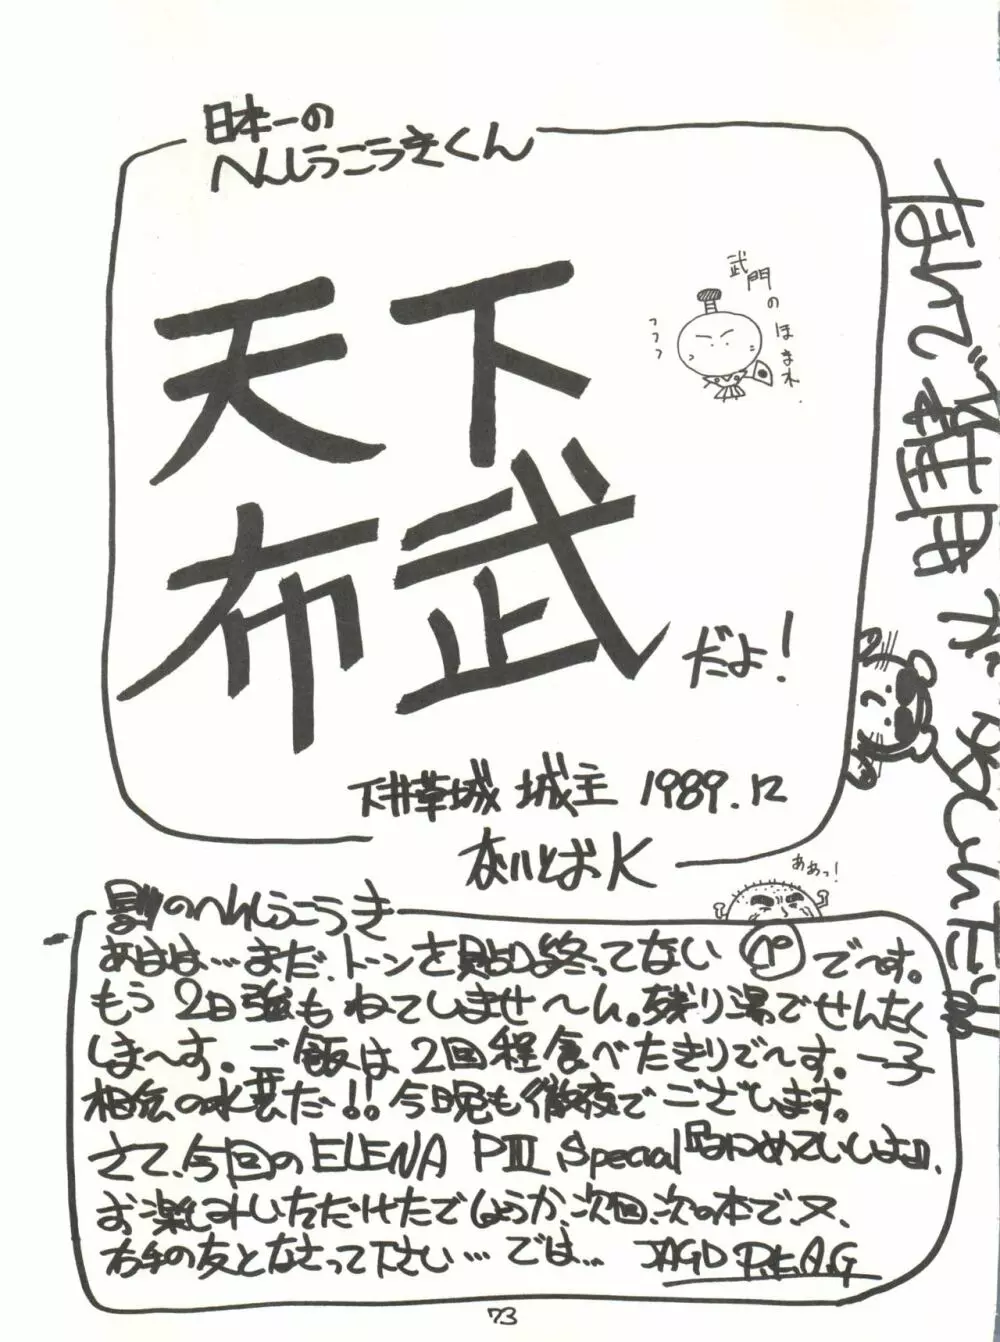 日本一の
へんしうこうきくん
天下
布武
だよ!
武門のほまれ.
フフフ
下井草城 城主 1989.12
ないとお K
なんで雑用が
ああっ!
副のへんしうこうき
あはは…まだ、トーンさえ貼り終ってない ㋬ で〜す。
もう 2日強も ねてしませ〜ん。残り湯でせんたく
しま〜す。ご飯は 2回程食べたきりで〜す。一子
相伝の水芸だ!! 今晩も徹夜でございます。
さて、今回の ELENA PⅢ Special
お楽しみいただけたでしょうか、次回、次の本で、又、
右手の友となさって下さい… では… JAGD P.E.A.G
73